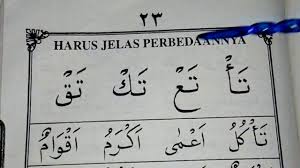 ٢٣
HARUS JELAS PERBEDAANNYA
تَأْ تَعْ تَكْ تَقْ
تَأْكُلُ اَعْمٰى اَكْرَمُ اَقْوَامٌ